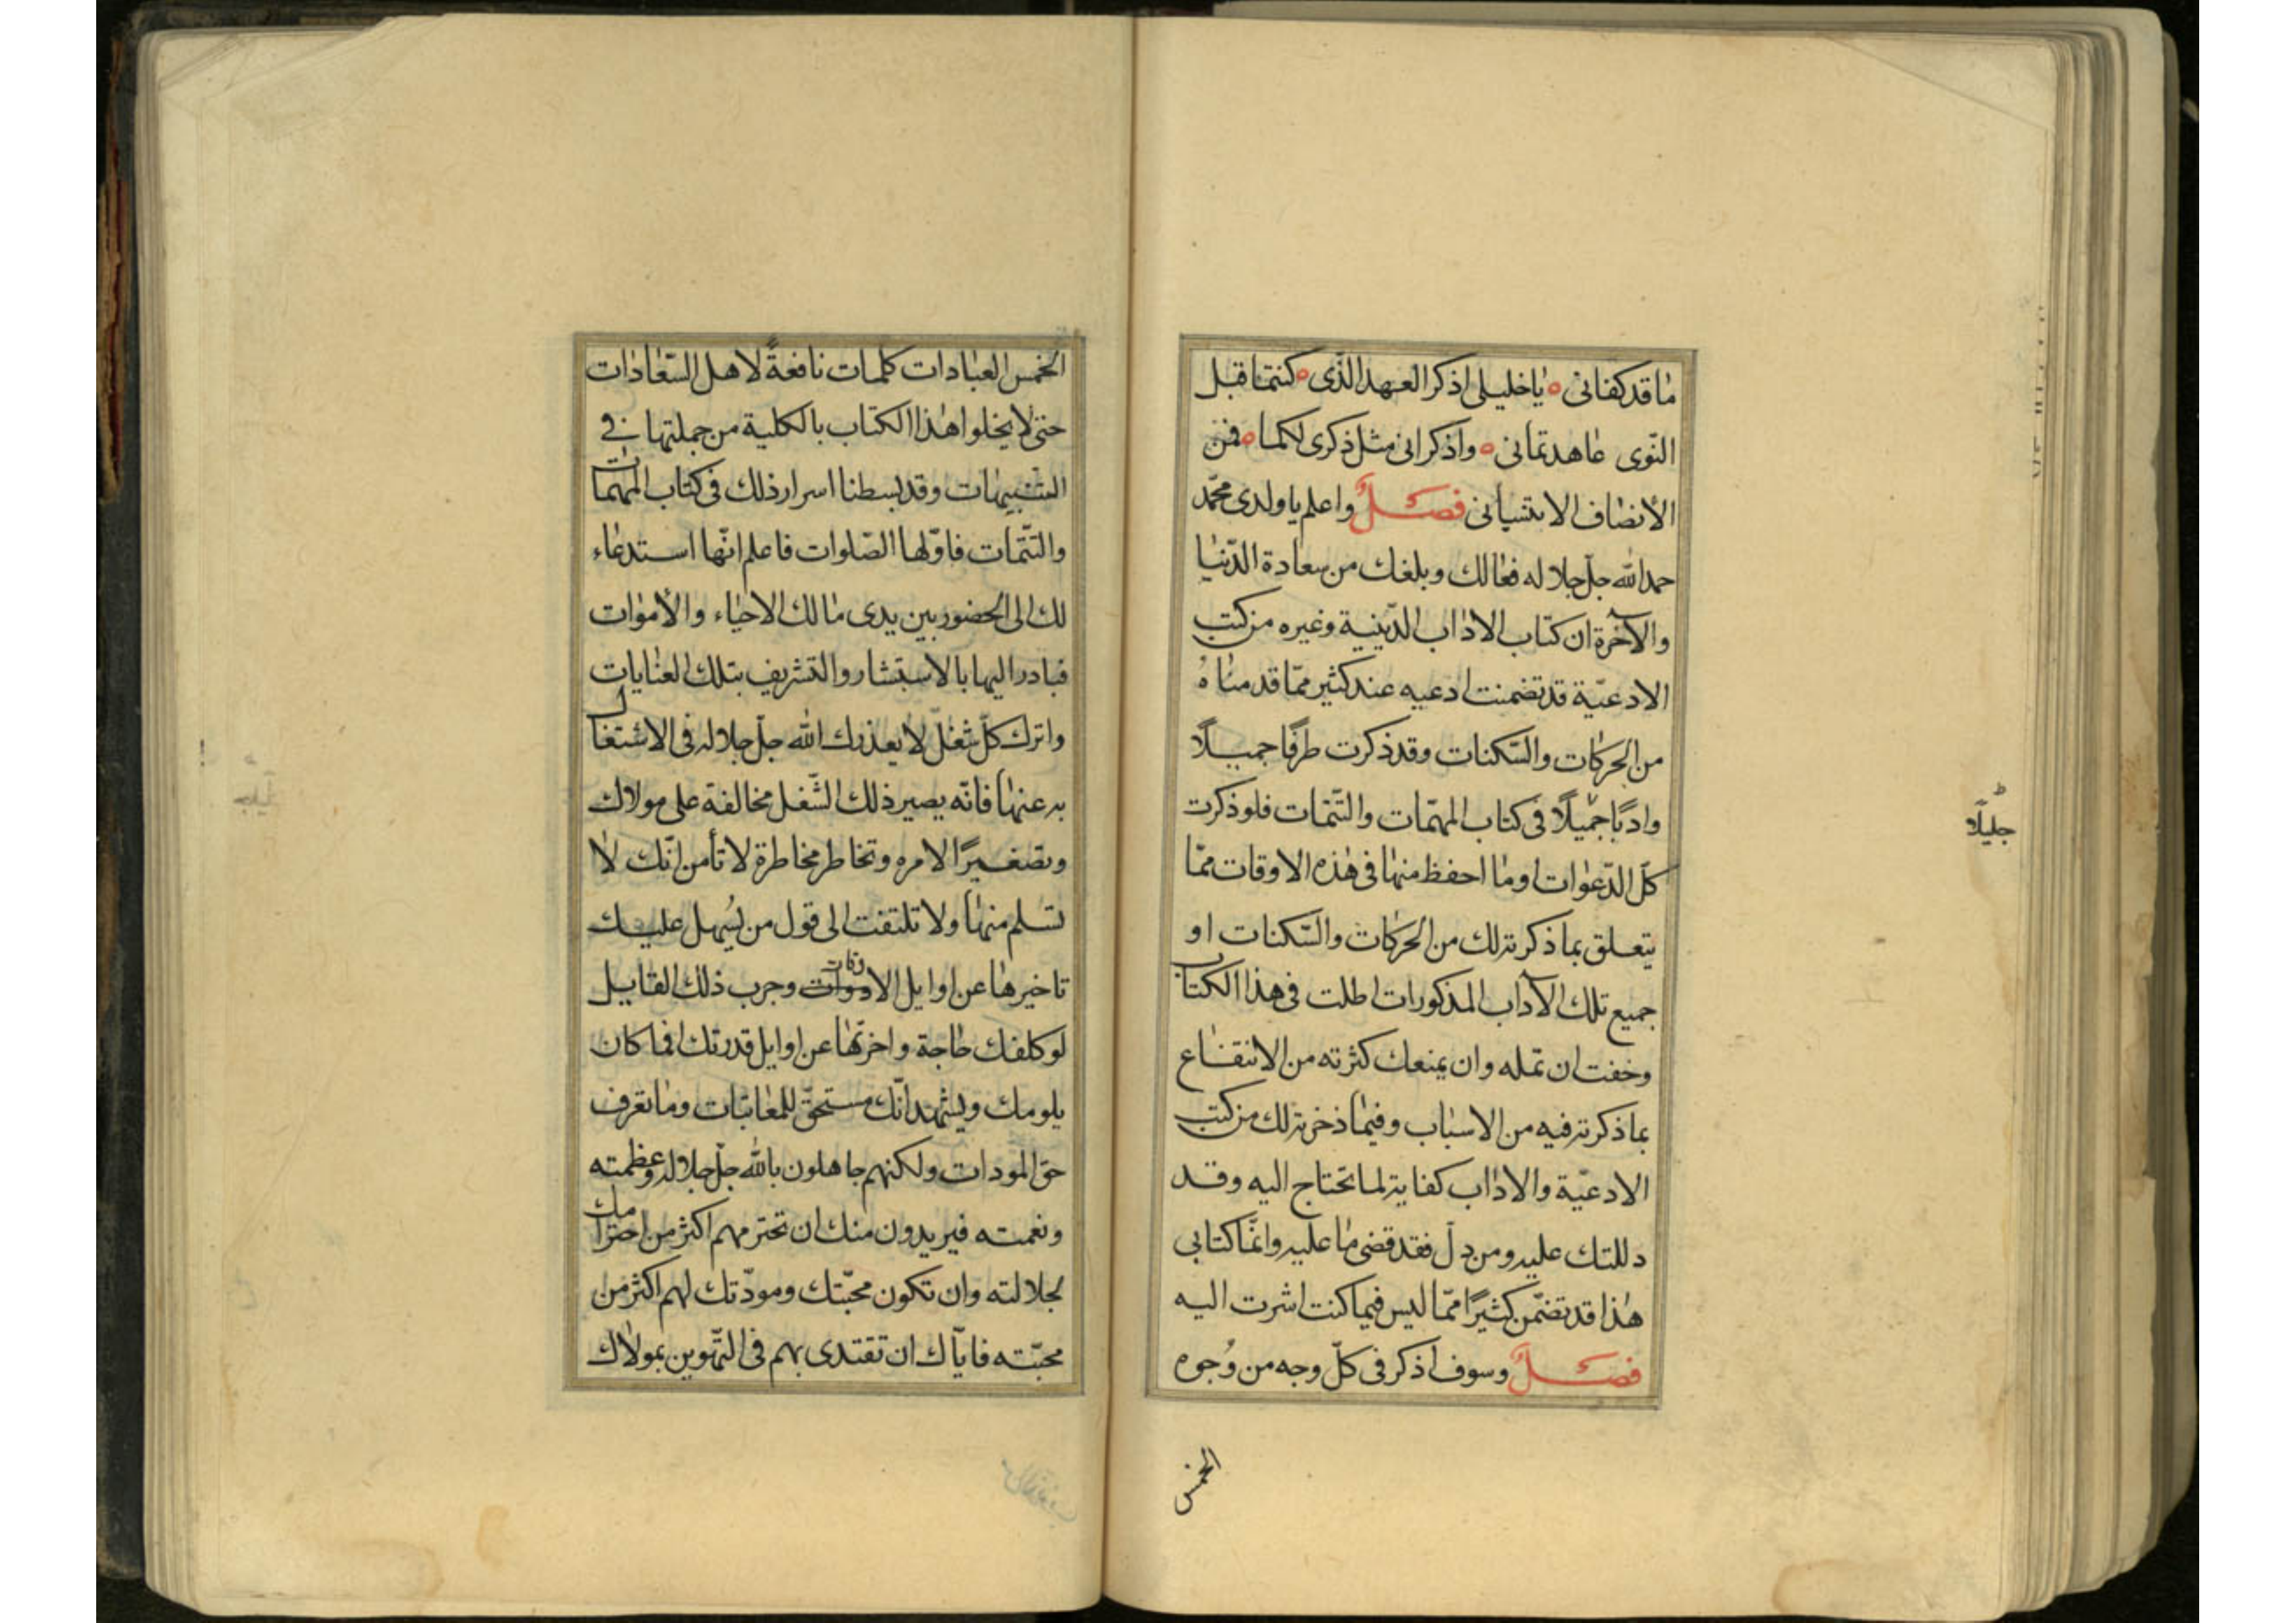 ما قد كفانى ٥ يا خليلى اذكر العهد الذى ٥ كنتما قبل
النّوى عاهدتمانى ٥ واذكرانى مثل ذكرى لكما ٥ فمن
الأنصاف الا تنسيانى فصل واعلم يا ولدى محمّد
حمد الله جلّ جلاله فعالك وبلغك من سعادة الدّنيا
والآخرة ان كتاب الاداب الدّينية وغيره من كتب
الادعيّة قد تضمنت ادعيه عند كثير ممّا قدمناهُ
من الحركات والسّكنات وقد ذكرت طرفًا جميلًا
وادبًا جميلًا فى كتاب المهمّات والتّتمّات فلو ذكرت
جليلًا
كلّ الدّعوات او ما احفظ منها فى هذه الاوقات ممّا
يتعلق بما ذكرته لك من الحركات والسّكنات او
جميع تلك الآداب المذكورات اطلت فى هذا الكتاب
وخفت ان تمله وان يمنعك كثرته من الانتفاع
بما ذكرته فيه من الاسباب وفيما ذخرته لك من كتب
الادعيّة والاداب كفاية لما تحتاج اليه وقد
دللتك عليه ومن دلّ فقد قضى ما عليه وانّما كتابى
هذا قد تضمّن كثيرًا ممّا ليس فيما كنت اشرت اليه
فصلٌ وسوف اذكر فى كلّ وجه من وُجوه
الخمس
الخمس العبادات كلمات نافعةً لاهل السّعادات
حتى لا يخلوا هذا الكتاب بالكلية من جملتها فى
التنبيهات وقد بسطنا اسرار ذلك فى كتاب المهمات
والتّتمّات فاوّلها الصّلوات فاعلم انّها استدعاء
لك الى الحضور بين يدى مالك الاحياء والأموات
فبادر اليها بالاستبشار والتشريف بتلك العنايات
واترك كلّ شغل لا يعذرك الله جلّ جلاله فى الاشتغال
به عنها فانّه يصير ذلك الشّغل مخالفة على مولاك
وتصغيرًا لامره وتخاطر مخاطرة لا تأمن انّك لا
تسلم منها ولا تلتفت الى قول من يُسهل عليك
تاخيرها عن اوايل الاوقات وجرب ذلك القايل
لو كلفك حاجة واخرتها عن اوايل قدرتك اما كان
يلومك ويشهد انّك مستحقّ للمعاتبات وما تعرف
حق المودات ولكنهم جاهلون بالله جلّ جلاله وعظمته
ونعمته فيريدون منك ان تحترمهم اكثر من احترامك
لجلالته وان تكون محبّتك ومودّتك لهم اكثر من
محبّته فايّاك ان تقتدى بهم فى التّهوين بمولاك